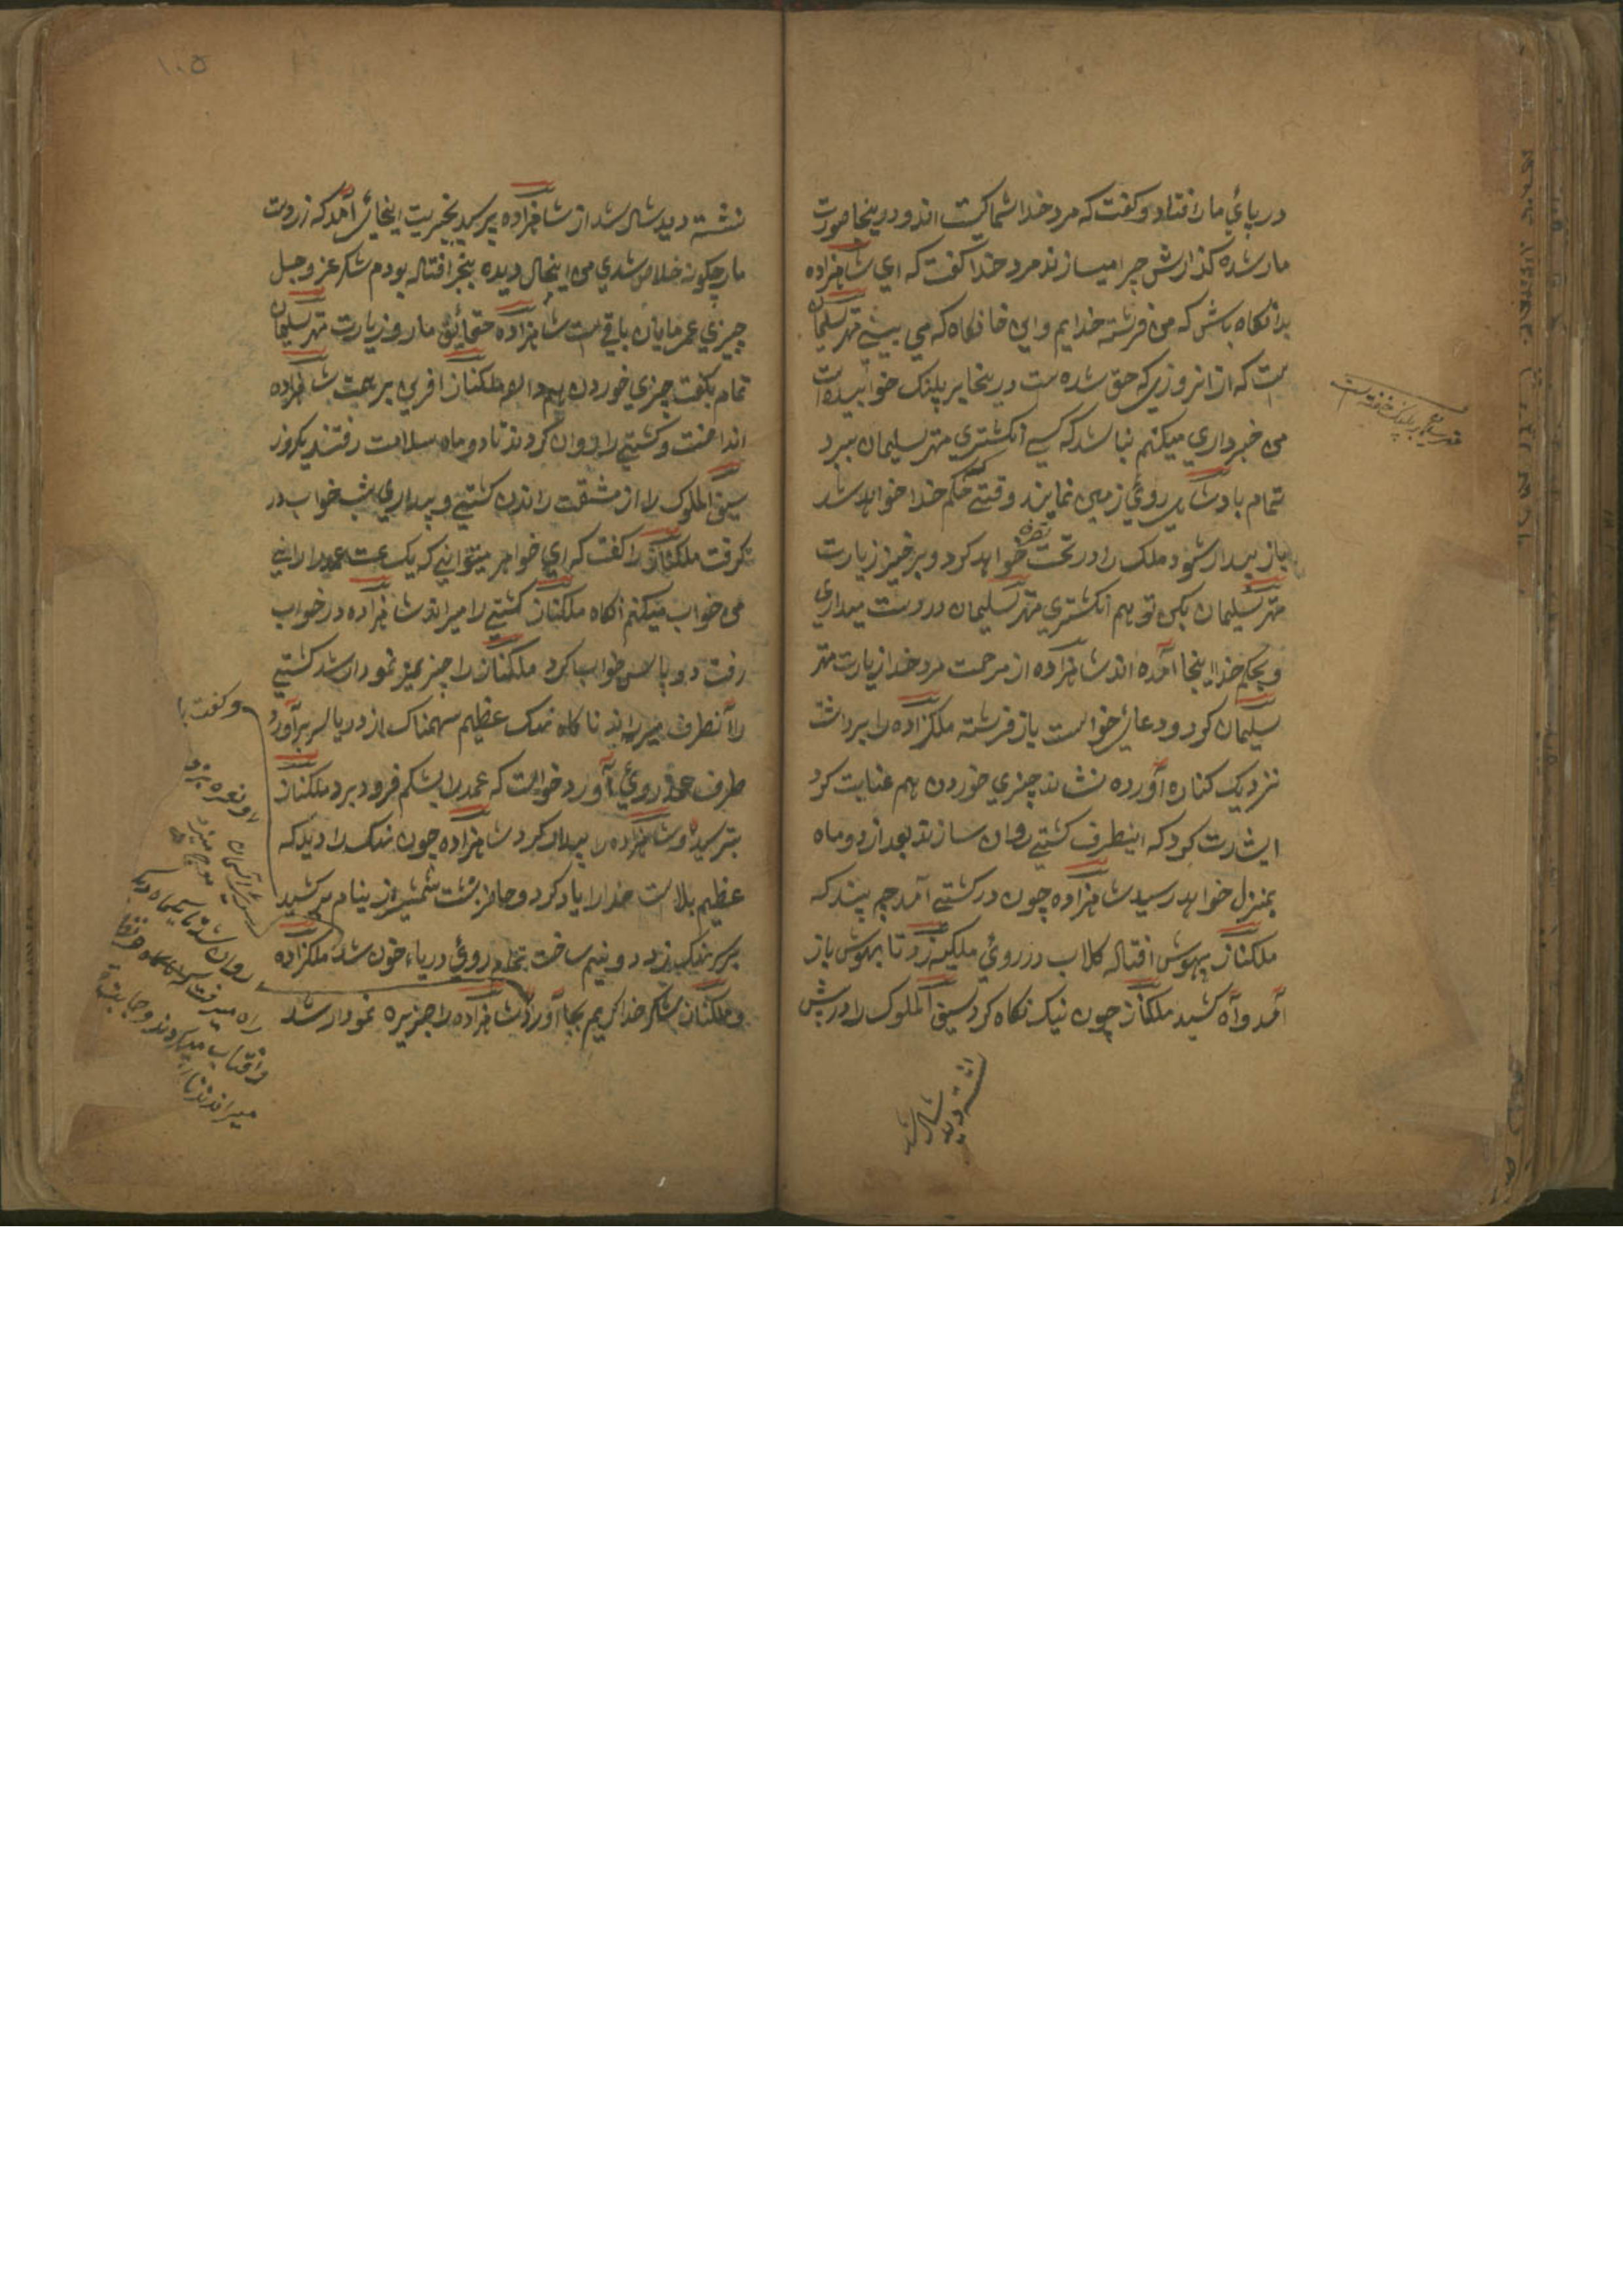 در پای مار افتاد و کفت که مرد خدا شما کیست اند و درینجا صورت
مار شده کذارش چرا میسازند مرد خدا کفت که ای شاهزاده
بدانکاه باش که من فرشته خدایم و این خانکاه که می بینی مهتر سلیمان
ست که از انروزی که حق شده ست درینجا بر پلنک خوابیده است
من خبرداری میکنم نباشد که کسی انکشتری مهتر سلیمان ببرد
تمام بادشاهی روی زمین نمایند وقتی که حکم خدا خواهد شد
باز بیدار شود ملک را در تحت تصرف خواهد کرد و برخیز زیارت
مهتر سلیمان بکن تو هم انکشتری مهتر سلیمان در دست میداری
و بحکم خدا اینجا آمده اند شاهزاده از مرحمت مرد خدا زیارت مهتر
سلیمان کرد و دعای خواست باز فرشته ملکزاده را برداشت
نزدیک کناره آورده نشاند چیزی خوردن هم عنایت کرد
ایشارت کرد که اینطرف کشتی روان سازند بعد از دو ماه
بمنزل خواهد رسید شاهزاده چون در کشتی آمد چه بیند که
ملکناز بیهوش افتاله کلاب در روی ملکه زد تا بهوش باز
آمد و آه کشید ملکناز چون نیک نکاه کرد سیف الملوک را در پیش
نشسته دید شاد شد
۱۰۵
نشسته دید شاد شد از شاهزاده پرسید بخیریت اینجای آمد که از دست
مار چکونه خلاص شدی من اینحال دیده بیخبر افتاله بودم شکر عز و جل
چیزی عمر مایان باقی ست شاهزاده حقائق مار و زیارت مهتر سلیمان
تمام بکفت چیزی خوردن هم داد ملکناز افرین بر همت شاهزاده
انداخت و کشتی را روان کردند تا دو ماه سلامت رفتند یکروز
سیف الملوک را از مشقت راندن کشتی و بیداری شب خواب در
کرفت ملکناز را کفت که ای خواهر میتوانی که یک ساعت عمد را رانی
من خواب میکنم انکاه ملکناز کشتی را میراند شاهزاده در خواب
رفت دو پاس خواب کرد ملکناز را چیز نمودار شد کشتی
را آنطرف میراند ناکاه نهنک عظیم سهمناک از دریا سر برآورد
طرف عمد روی آورد خواست که عمد را بشکم فرو برد ملکناز
بترسید و شاهزاده را بیدار کرد شاهزاده چون نهنک را دید که
عظیم بلاست خدا را یاد کرد و حاضر کشت شمشیر از نیام برکشید
بر سر نهنک زد دو نیم ساخت تمام روی دریا خون شد ملکزاده
و ملکناز شکر خدا کریم بجا آورد شاهزاده را جزیره نمودار شد
و کفت
او نعره بزد
روان شد تا یکماه دیکر
راه میرفت
و آفتاب میکردند و جانب
میراندند تا